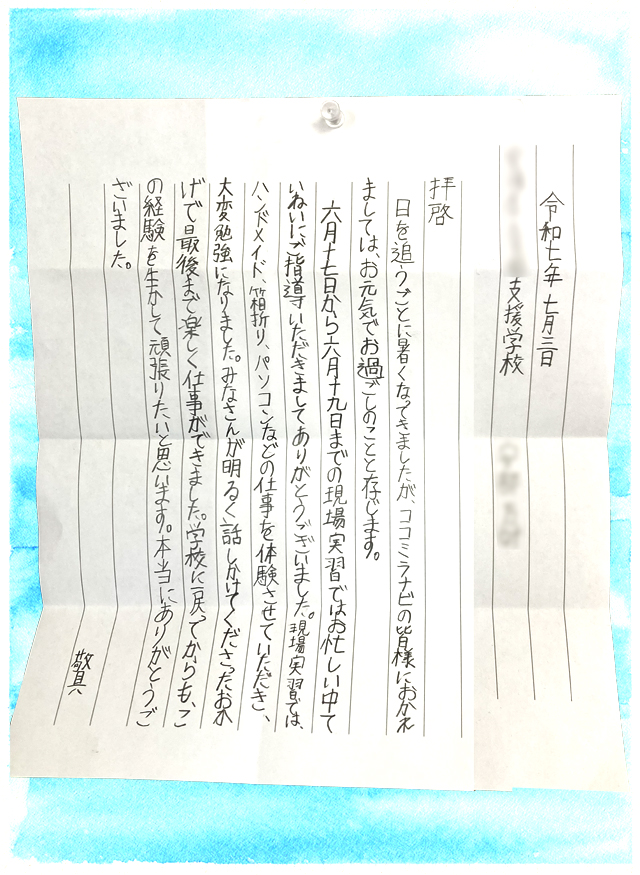 令和七年 七月三日
支援学校
拝啓
日を追うごとに暑くなってきましたが、ココミラナビの皆様におかれ
ましては、お元気でお過ごしのことと存じます。
六月十七日から六月十九日までの現場実習ではお忙しい中て
いねいにご指導いただきましてありがとうございました。現場実習では、
ハンドメイド、箱折り、パソコンなどの仕事を体験させていただき、
大変勉強になりました。みなさんが明るく話しかけてくださったおか
げで最後まで楽しく仕事ができました。学校に戻ってからも、こ
の経験を生かして頑張りたいと思います。本当にありがとうご
ざいました。
敬具